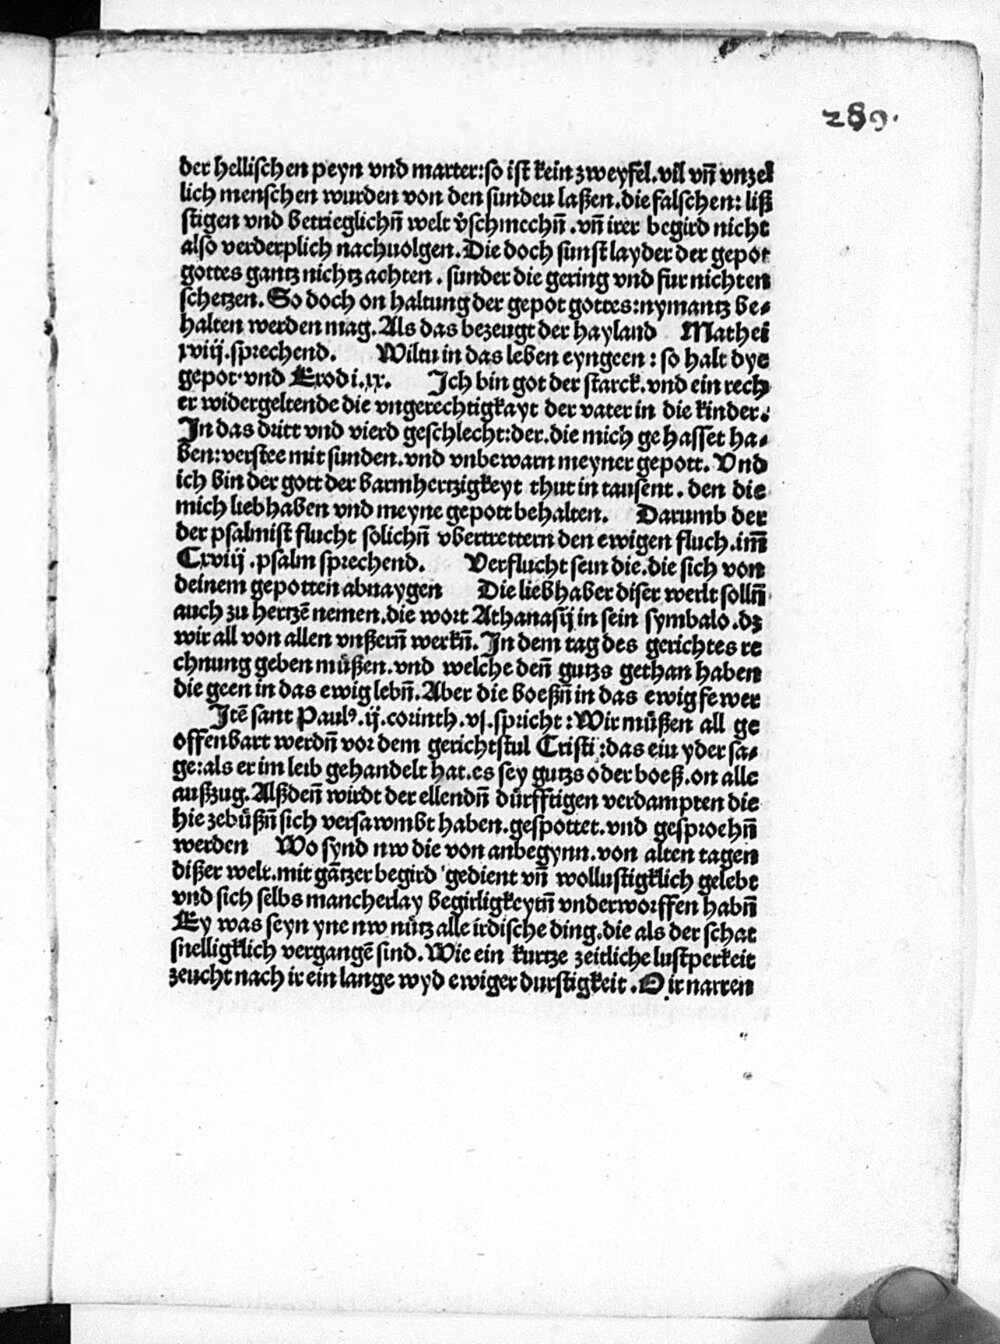 289.
der hellischen peyn vnd marter:so ist kein zweyfel.vil vn̄ vnzel
lich menschen wurden von den sunden laßen.die falschen: liß
stigen vnd betrieglichn̄ welt v̄schmechn̄ .vn̄ irer begird nicht
also verderplich nachuolgen.Die doch sunst layder der gepot
gottes gantz nichtz achten . sunder die gering vnd fur nichten
schetzen.So doch on haltung der gepot gottes:nymantz be-
halten werden mag.Als das bezeugt der hayland Mathei
xviij.sprechend. Wiltu in das leben eyngeen : so halt dye
gepot.vnd Exodi.xx. Ich bin got der starck.vnd ein rech
er widergeltende die vngerechtigkayt der vater in die kinder.
In das dritt vnd vierd geschlecht:der.die mich gehasset ha-
ben:verstee mit sunden.vnd vnbewarn meyner gepott. Vnd
ich bin der gott der barmhertzigkeyt thut in tausent . den die
mich liebhaben vnd meyne gepott behalten. Darumb der
der psalmist flucht solichn̄ vbertrettern den ewigen fluch.im̄
Cxviij .psalm sprechend. Verflucht sein die.die sich von
deinem gepotten abnaygen Die liebhaber diser werlt solln̄
auch zu hertzē nemen.die wort Athanasij in sein symbalo.dz
wir all von allen vnßern̄ werkn̄. In dem tag des gerichtes re
chnung geben müßen.vnd welche den̄ gutzs gethan haben
die geen in das ewig lebn̄. Aber die boeßn̄ in das ewig fewer
Itē sant Paulꝰ.ij.corinth.vj.spricht : Wir müßen all ge
offenbart werdn̄ vor dem gerichtstul Cristi :das ein yder sa-
ge:als er im leib gehandelt hat.es sey gutzs oder boeß.on alle
außzug. Alßden̄ wirdt der ellendn̄ dürfftigen verdampten die
hie zebüßn̄ sich versawmbt haben.gespottet.vnd gesproehn̄
werden Wo synd nw die von anbegynn.von alten tagen
dißer welt.mit gātzer begird gedient vn̄ wollustigklich gelebt
vnd sich selbs mancherlay begirligkeytn̄ vnderworffen habn̄
Ey was seyn yne nw nütz alle irdische ding.die als der schat
snelligklich vergangē sind. Wie ein kurtze zeitliche lustperkeit
zeucht nach ir ein lange wyd ewiger durstigkeit . O ir narren